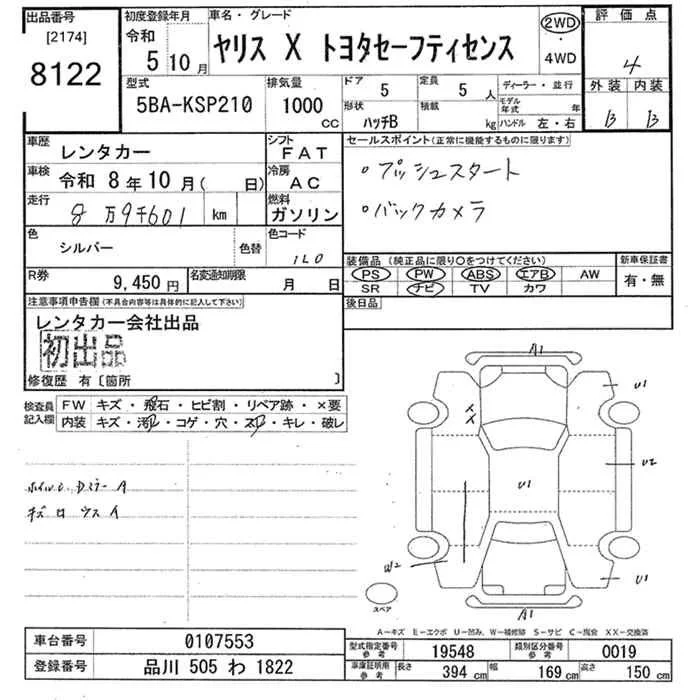 出品番号
[2174]
8122
初度登録年月
令和
5 10月
車名・グレード
ヤリス X トヨタセーフティセンス
2WD
・
4WD
評価点
4
外装 内装
B B
型式
5BA-KSP210
排気量
1000
cc
ドア
5
定員
5 人
形状
ハッチB
積載
kg
ディーラー・並行
モデル年式 年
ハンドル 左・右
車歴
レンタカー
シフト
FAT
車検
令和 8年10月( 日)
冷房
AC
走行
8万9千601 km
燃料
ガソリン
色
シルバー
色替
色コード
1L0
R券
9,450円
名変通知期限
月 日
セールスポイント(正常に機能するものに限ります)
・プッシュスタート
・バックカメラ
装備品(純正品に限り○をつけてください)
PS PW ABS エアB AW
SR ナビ TV カワ
新車保証書
有・無
後日品
注意事項申告欄(不具合内容等は具体的に記入して下さい)
レンタカー会社出品
初出品
修復歴 有〔箇所 〕
検査員
記入欄
FW キズ・飛石・ヒビ割・リペア跡・×要
内装 キズ・汚れ・コゲ・穴・スレ・キレ・破レ
Dミラー A
A1
U1
U2
U1
W2
U1
A1
スペア
A-キズ E-エクボ U-凹み、W-補修跡 S-サビ C-腐食 XX-交換済
車台番号
0107553
登録番号
品川 505 わ 1822
型式指定番号
参考
19548
類別区分番号
参考
0019
車庫証明用
参考
長さ
394 cm
幅
169 cm
高さ
150 cm